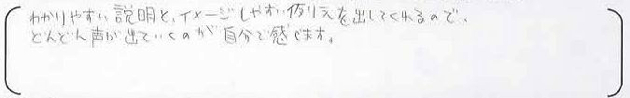 わかりやすい説明と、イメージしやすい例えを出してくれるので、
どんどん声が出ていくのが自分で感じます。